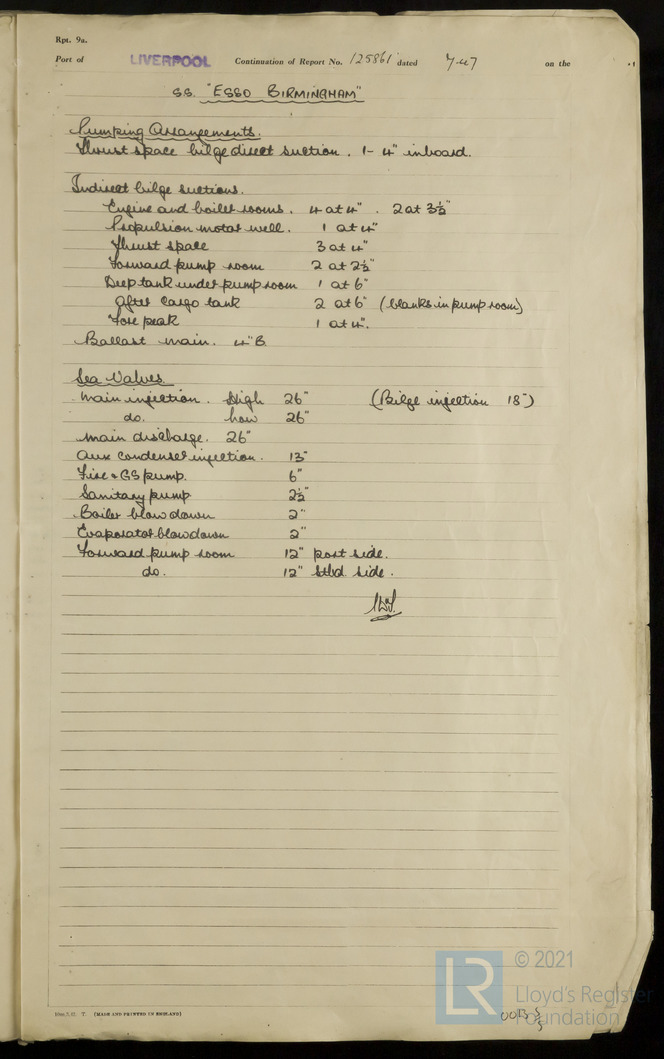 Rpt. 9a.
Port of LIVERPOOL Continuation of Report No. 125861 dated 7.47 on the
S.S. "ESSO BIRMINGHAM"
Pumping Arrangements.
Thrust space bilge direct suction. 1- 4" inboard.
Indirect bilge suctions.
Engine and boiler rooms. 4 at 4". 2 at 3½"
Propulsion motor well. 1 at 4"
Thrust space 3 at 4"
Forward pump room 2 at 2½"
Deep tank under pump room 1 at 6"
After cargo tank 2 at 6" (blanks in pump room)
Fore peak 1 at 4".
Ballast main. 4"B.
Sea Valves.
Main injection. High 26" (Bilge injection 18")
do. Low 26"
Main discharge. 26"
Aux condenser injection. 13"
Fire & GS pump. 6"
Sanitary pump 2½"
Boiler blow down 2"
Evaporator blow down 2"
Forward pump room 12" port side.
do. 12" stbd. side.
© 2021
LR
Lloyd's Register
Foundation
T. (MADE AND PRINTED IN ENGLAND)